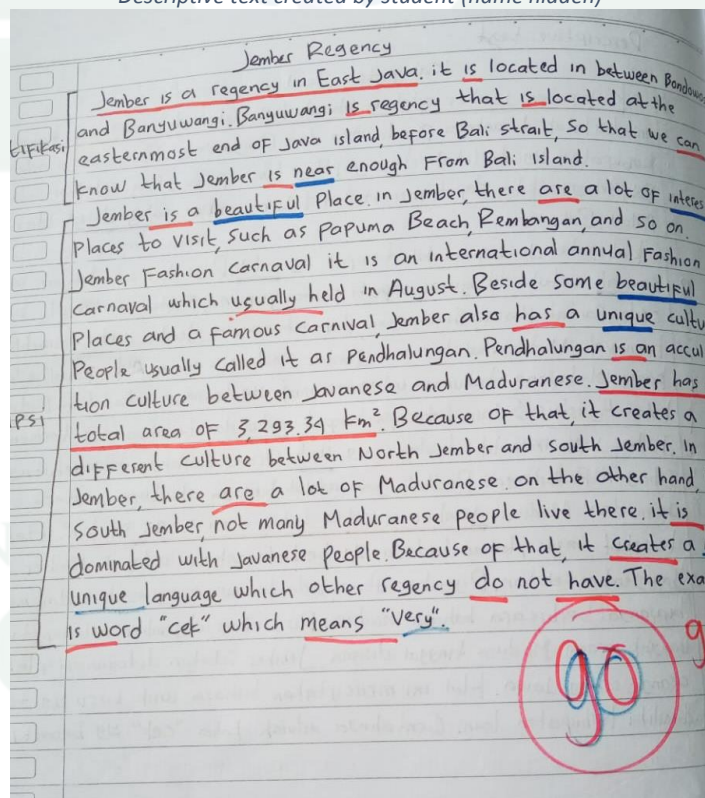 Descriptive text created by student (name hidden)
Jember Regency
Jember is a regency in East Java. it is located in between Bondowo
and Banyuwangi. Banyuwangi is regency that is located at the
tifikasi
easternmost end of Java island, before Bali strait, So that we can
know that Jember is near enough From Bali Island.
Jember is a beautiful Place. in Jember, there are a lot of interes
Places to visit, such as Papuma Beach, Rembangan, and so on.
Jember Fashion Carnaval it is an international annual Fashion
carnaval which usually held in August. Beside some beautiful
Places and a famous Carnival, Jember also has a unique cultu
People usually called it as Pendhalungan. Pendhalungan is an accul
tion culture between Javanese and Maduranese. Jember has
psi
total area of 3,293.34 Km². Because of that, it creates a
different culture between North Jember and south Jember. in
Jember, there are a lot of Maduranese. on the other hand,
South Jember, not many Maduranese people live there. it is
dominated with Javanese people. Because of that, it creates a
unique language which other regency do not have. The exa
is word "cek" which means "very".
90
9